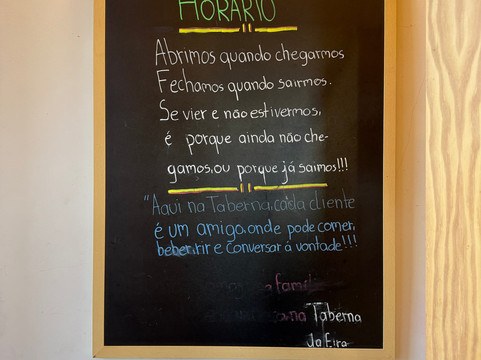 HORÁRIO
Abrimos quando chegarmos
Fechamos quando sairmos.
Se vier e não estivermos,
é porque ainda não che-
gamos, ou porque já saimos!!!
"Aqui na Taberna, cada cliente
é um amigo, onde pode comer,
beber, rir e conversar á vontade!!!
família
na Taberna
da Eira